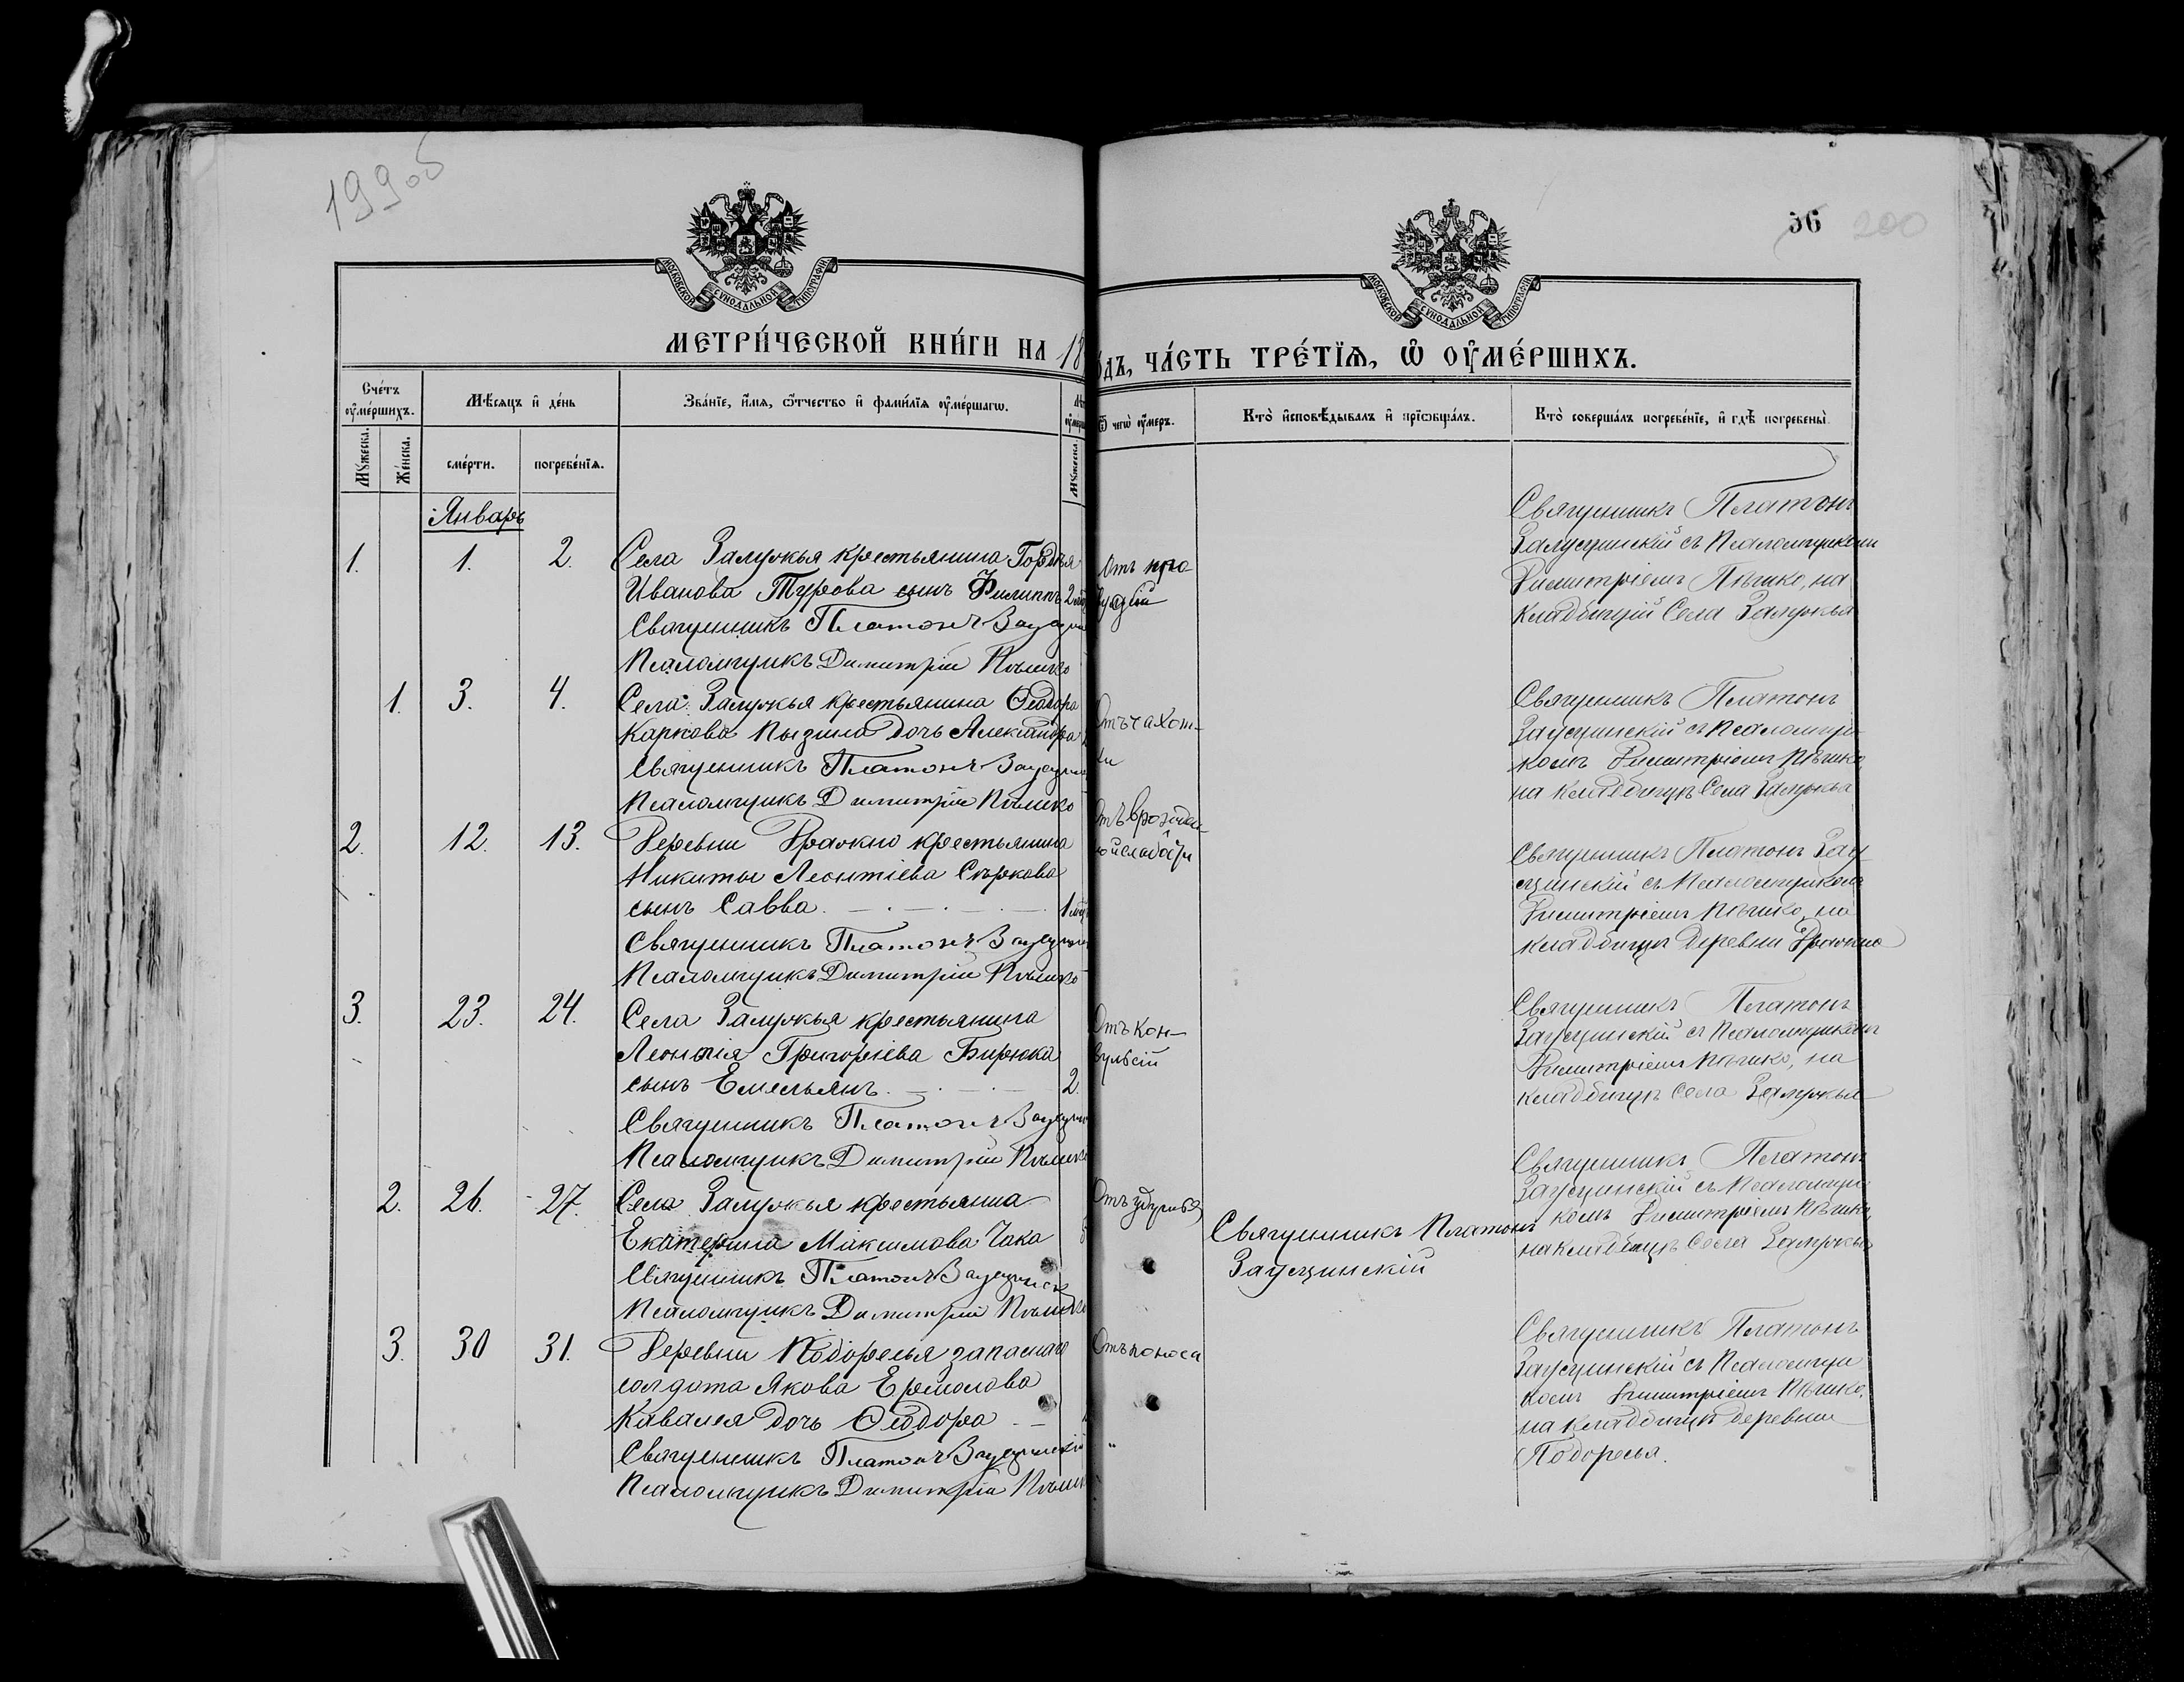 199об
56 200
МОСКОВСКОЙ СУНОДАЛЬНОЙ ТИПОГРАФІИ
МОСКОВСКОЙ СУНОДАЛЬНОЙ ТИПОГРАФІИ
МЕТРИ́ЧЕСКОЙ КНИ́ГИ НА 18
ДЪ, ЧА́СТЬ ТРЕ́ТІѦ, Ѡ ОУМЕ́РШИХЪ.
Сче́тъ оумершихъ.
Мѣсяцъ и день
Зва́ніе, и́мя, ѻ́тчество и фами́лія оумершагѡ.
Ѿ чегѡ̀ оумеръ.
Кто̀ исповѣдывалъ и пріѡбщалъ.
Кто̀ совершалъ погребеніе, и гдѣ погребены̀.
Мꙋжеска.
Женска.
смерти.
погребенія.
Мꙋжеска
Январь
1. 1. 2.
Села Залужья крестьянина Гордѣя
Иванова Турова сынъ Филиппъ 2
Священникъ Платонъ Заусцин
Псаломщикъ Димитрій Пѣшко
Отъ про
студы
Священникъ Платонъ
Заусцинскій съ Псаломщикомъ
Димитріемъ Пѣшко, на
кладбищѣ Села Залужья
1. 3. 4.
Села Залужья крестьянина Ѳеодора
Карпова Пызина дочь Александра
Священникъ Платонъ Заусцин
Псаломщикъ Димитрій Пѣшко
Отъ чахот-
ки
Священникъ Платонъ
Заусцинскій съ Псаломщи-
комъ Димитріемъ Пѣшко
на кладбищѣ Села Залужья
2. 12. 13.
Деревни Дражно крестьянина
Никиты Леонтіева Сѣркова
сынъ Савва 1
Священникъ Платонъ Заусцин
Псаломщикъ Димитрій Пѣшко
Отъ врожден
ной слабости
Священникъ Платонъ Зау-
сцинскій съ Псаломщикомъ
Димитріемъ Пѣшко, на
кладбищѣ деревни Дражно
3. 23. 24.
Села Залужья крестьянина
Леонтія Григоріева Бирюка
сынъ Емельянъ 2.
Священникъ Платонъ Заусцин
Псаломщикъ Димитрій Пѣшко
Отъ кон-
вульсій
Священникъ Платонъ
Заусцинскій съ Псаломщикомъ
Димитріемъ Пѣшко, на
кладбищѣ Села Залужья
2. 26. 27.
Села Залужья крестьянка
Екатерина Максимова Чака
Священникъ Платонъ Заусцинск
Псаломщикъ Димитрій Пѣшко
Отъ удушья
Священникъ Платонъ
Заусцинскій
Священникъ Платонъ
Заусцинскій съ Псаломщи
комъ Димитріемъ Пѣшко,
на кладбищѣ Села Залужья
3. 30 31.
Деревни Подоресья запаснаго
солдата Якова Ермолова
Каваля дочь Ѳеодора
Священникъ Платонъ Заусцинскій
Псаломщикъ Димитрій Пѣшк
Отъ поноса
Священникъ Платонъ
Заусцинскій съ Псаломщи
комъ Димитріемъ Пѣшко,
на кладбищѣ деревни
Подоресья.